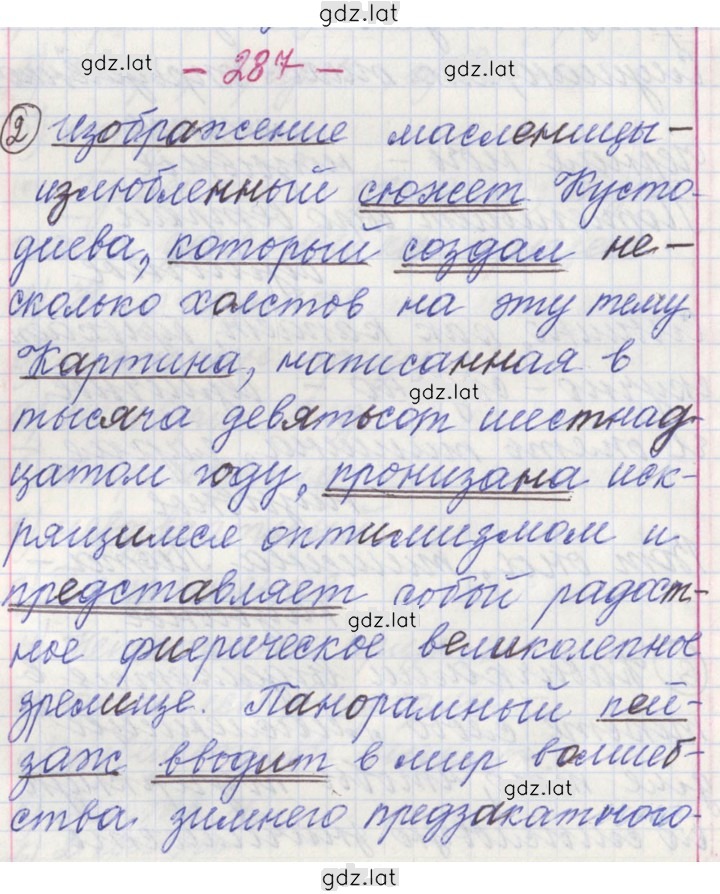 gdz.lat
gdz.lat
- 287 -
gdz.lat
2 Изображение масленицы-
излюбленный сюжет Кусто-
gdz.lat
диева, который создал не-
сколько холстов на эту тему.
Картина, написанная в
gdz.lat
тысяча девятьсот шестнад-
цатом году, пронизана иск-
gdz.lat
рящимся оптимизмом и
представляет собой радост-
gdz.lat
ное фиерическое великолепное
зрелище. Панорамный пей-
заж вводит в мир волшеб-
gdz.lat
ства зимнего предзакатного-
gdz.lat